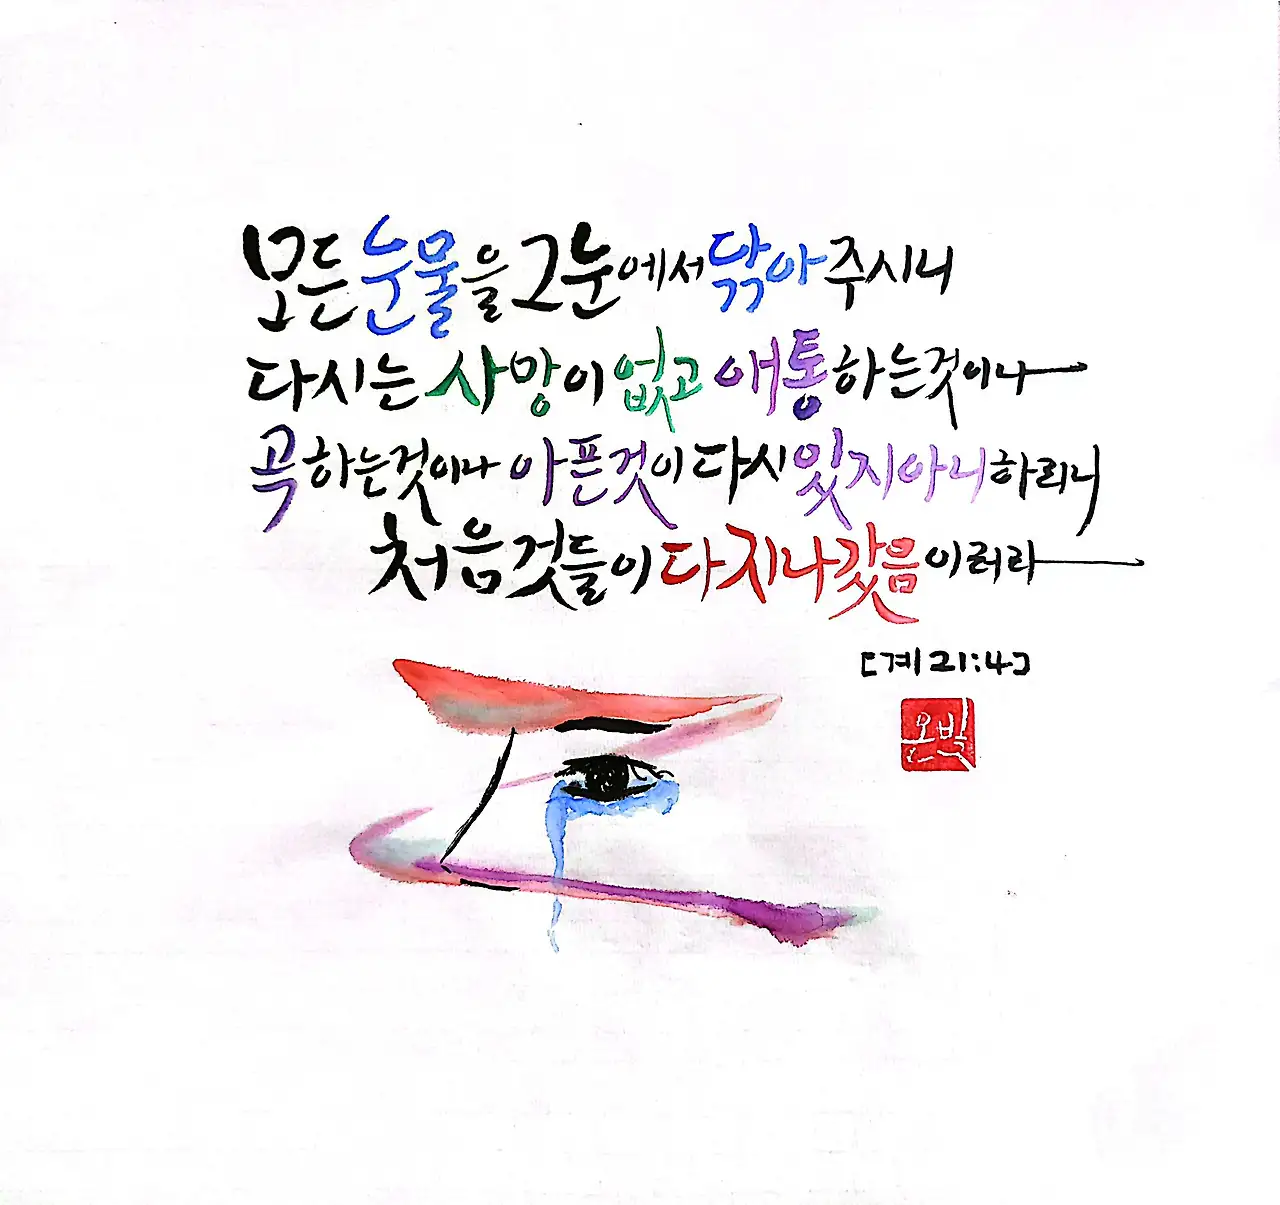 모든 눈물을 그 눈에서 닦아 주시니
다시는 사망이 없고 애통하는 것이나
곡하는 것이나 아픈 것이 다시 있지 아니하리니
처음 것들이 다 지나갔음이러라
[계 21:4]
은빛